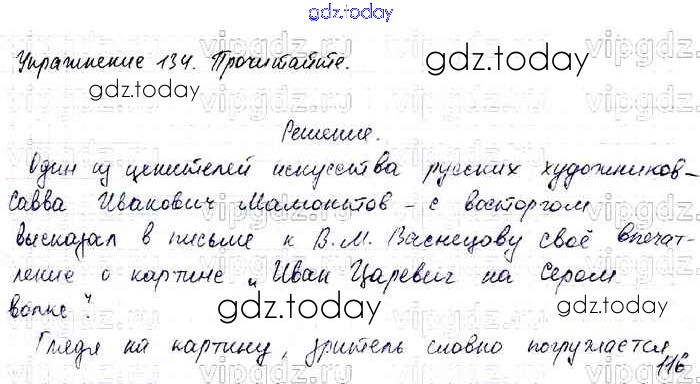 gdz.today
Упражнение 134. Прочитайте.
gdz.today
gdz.today
Решение.
Один из ценителей искусства русских художников-
Савва Иванович Мамонтов - с восторгом
высказал в письме к В.М. Васнецову своё впечат-
ление о картине „Иван Царевич на Сером
волке".
gdz.today
gdz.today
Глядя на картину, зритель словно погружается
116